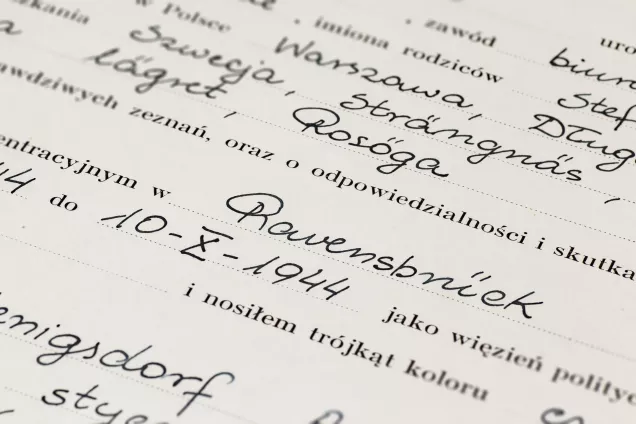 w Polsce , zawód
imiona rodziców biur
Warszawa, Stef
Szwecja, Strängnäs, Dług
lägret, Rosöga
awdziwych zeznań, oraz o odpowiedzialności i skutka
entracyjnym w Ravensbrück
44 do 10-X-1944 jako więzień polityc
i nosiłem trójkąt koloru
enigsdorf
stycz